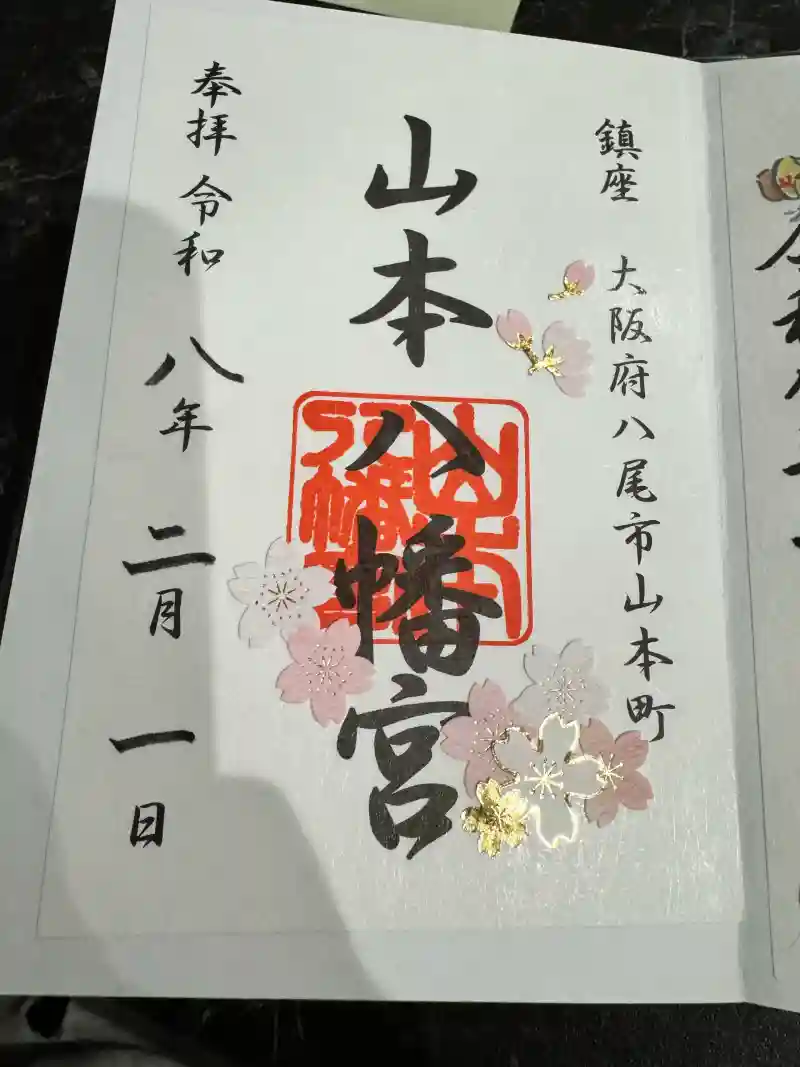 鎮座 大阪府八尾市山本町
山本八幡宮
奉拝 令和 八年 二月 一日